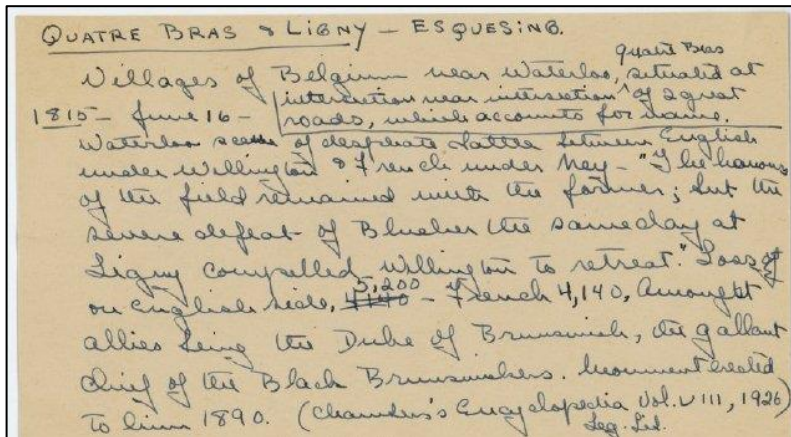 QUATRE BRAS & LIGNY – ESQUESING.
Quatre Bras
Villages of Belgium near Waterloo, ^ situated at
intersection near intersection of 2 great
1815 – June 16 – roads, which accounts for name.
Waterloo scene of desperate battle between English
under Wellington & French under Ney – "The honours
of the field remained with the former; but the
severe defeat of Blucher the same day at
Ligny compelled Wellington to retreat." Loss of
5,200
on English side, 4140 – French 4,140, Amongst
allies being the Duke of Brunswick, the gallant
chief of the Black Brunswickers. Monument erected
to him 1890. (Chambers's Encyclopedia Vol. VIII, 1926)
Leg. Lib.